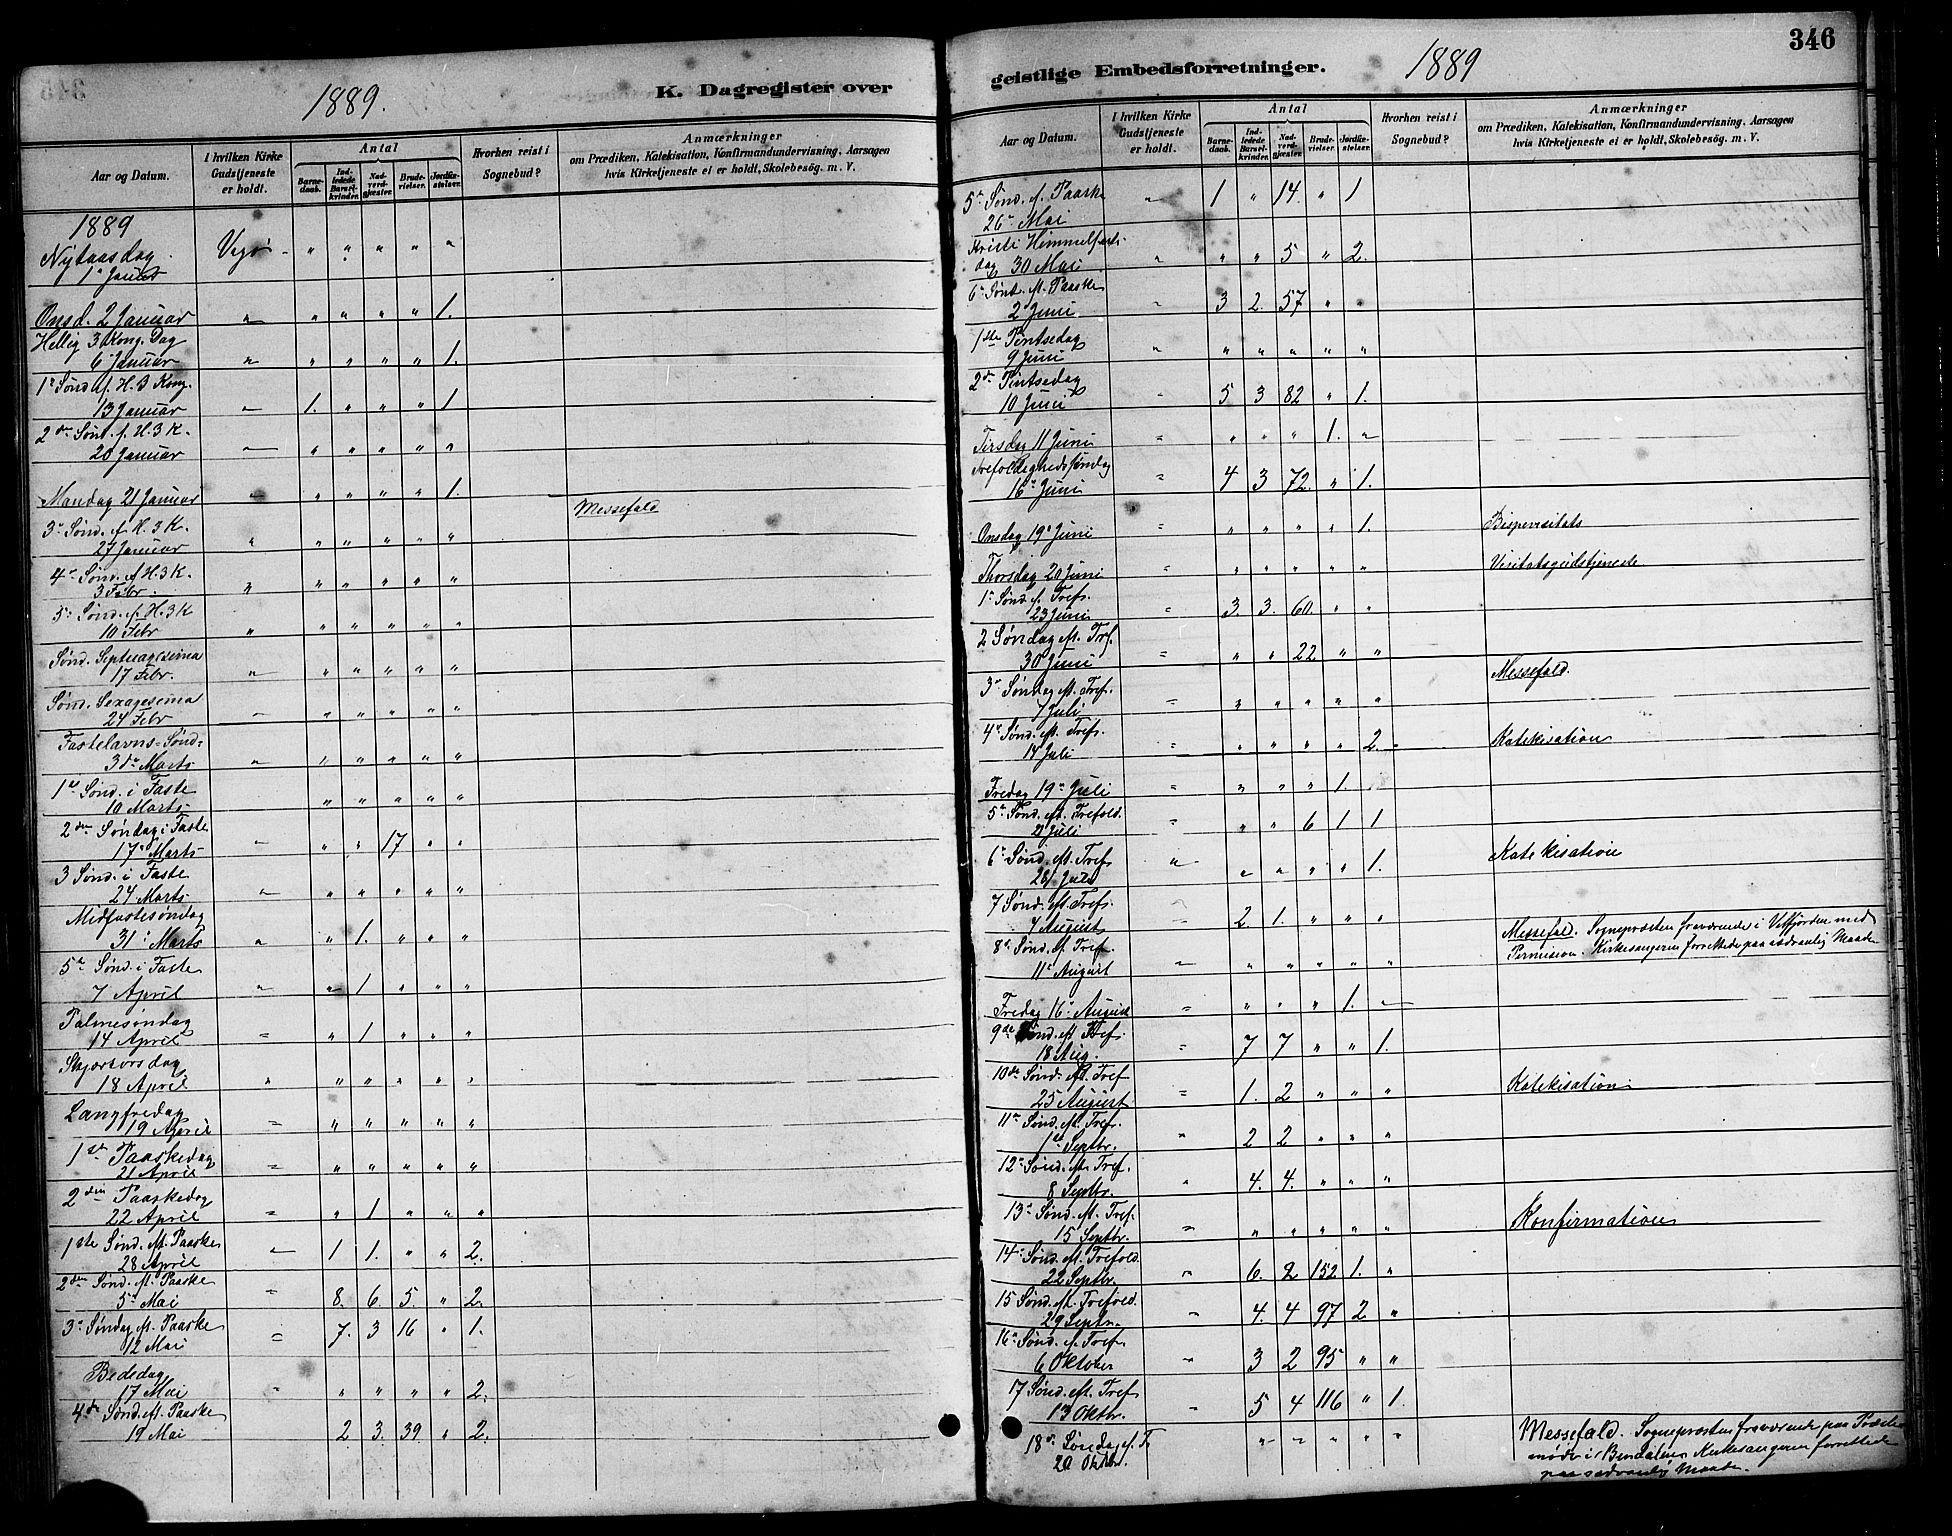 1889.
K. Dagregister over
Aar og Datum.
I hvilken Kirke Gudstjeneste er holdt.
Antal
Barnedaab.
Indledede Barselkvinder.
Nadverdgjester.
Brudevielser.
Jordfæstelser.
Hvorhen reist i Sognebud?
Anmærkninger
om Prædiken, Katekisation, Konfirmandundervisning, Aarsagen
hvis Kirketjeneste ei er holdt, Skolebesøg. m. V.
1889
Nytaarsdag Vegø " " " " "
1ste Januar
Onsd. 2 Januar " " " " " 1.
Hellig 3 Kong. Dag
6 Januar " " " " " 1.
1ste Sønd. ef. H. 3 Kong.
13 Januar " 1. " " " 1
2den Sønd. f. H. 3 K.
20 Januar " " " " " "
Mandag 21 Januar " " " " " 1.
3die Sønd. ef. H. 3 K. Messefald
27 Januar " " " " " "
4de Sønd. ef. H. 3 K.
3 Febr. " " " " " "
5te Sønd. ef. H. 3 K
10 Febr " " " " " "
Sønd. Septuagesima
17 Febr. " " " " " "
Sønd. Sexagesima
24 Febr " " " " " "
Fastelavns-Sønd-
3die Marts " " " " " "
1ste Sønd. i Faste
10 Marts " " " " "
2den Søndag i Faste
17de Marts " " " 17 " "
3 Sønd. i Faste
24 Marts " " " " " "
Midfastesøndag
31 Marts " " 1. " " "
5te Sønd. i Faste
7 April " " 1 " " "
Palmesøndag
14 April " " 1 " " "
Skjærtorsdag
18 April " " " " " "
Langfredag
19 April " " " " " "
1ste Paaskedag
21 April " " " " " "
2den Paaskedag
22 April " " 1 " " "
1ste Sønd. eft. Paaske
28 April " 1 1. " " 2.
2den Sønd. eft. Paaske
5te Mai " 8. 6. 5. " 2.
3die Søndag eft. Paaske
12 Mai " 7. 3 16 " 1.
Bededag
17 Mai " " " " " 2.
4de Sønd. eft. Paaske
19 Mai 2 3. 39 " 2.
346
geistlige Embedsforretninger.
1889
Aar og Datum.
I hvilken Kirke Gudstjeneste er holdt.
Antal
Barnedaab.
Indledede Barselkvinder.
Nadverdgjester.
Brudevielser.
Jordfæstelser.
Hvorhen reist i Sognebud?
Anmærkninger
om Prædiken, Katekisation, Konfirmandundervisning, Aarsagen
hvis Kirketjeneste ei er holdt, Skolebesøg. m. V.
5te Sønd. ef. Paaske " 1 " 14 " 1
26 Mai
Kristi Himmelfarts-
dag 30 Mai " " " 5 " 2.
6te Sønd. eft. Paaske
2 Juni 3 2. 57 " "
1ste Pintsedag
9 Juni " " " " " "
2den Pintsedag
10 Juni " 5 3 82 " 1.
Tirsdag 11 Juni " " " " 1. "
Trefoldighedssøndag
16 Juni " 4 3 72. " 1.
Onsdag 19 Juni " " " " " 1. Bispevisitats
Thorsdag 20 Juni " " " " " " Visitatsgudstjeneste
1ste Sønd. ef. Trefs.
23 Juni " 3. 3. 60 " "
2 Søndag eft. Tref.
30 Juni " " " 22 " "
3die Søndag eft. Tref. Messefald.
7 Juli " " " " " "
4de Sønd. eft. Trefs.
14 Juli " " " " " 2. Katekisation
Fredag 19 Juli " " " " 1.
5te Sønd. eft. Trefold.
21 Juli " " " 6 1 1
6te Sønd. eft. Tref
28 Juli " " " " " 1. Katekisation
7 Sønd. eft. Trefs.
4 August " 2. 1. " " "
8de Sønd. ef. Tref Messefald. Sognepræsten fraværende i Velfjorden med
11 August " " " " " " Permision. Kirkesangeren forrettede paa sædvanlig Maade
Fredag 16 August " " " " 1. "
9de Sønd. eft. Tref.
18 Aug. " 7 7 " " 1.
10de Sønd. eft. Tref
25 August " 1. 2 " " " Katekisation
11te Sønd. eft. Tref.
1ste Septbr. " 2 2 " " "
12te Sønd. eft. Tref.
8 Septbr. " 4. 4. " " "
13de Sønd. eft. Tref.
15 Septbr. " " " " " " Konfirmation
14de Sønd. eft. Trefold.
22 Septbr. " 6. 2 152 1. "
15 Sønd. eft. Trefold.
29 Septr. " 4. 4 97 2. "
16de Sønd. ef. Tref
6 Oktober " 3 2 95 " "
17 Sønd. eft. Tref
13 Oktbr. " 5 4 116 " 1.
18de Søndag ef. T. " " " " " Messefald. Sognepræsten fraværende paa
20 Oktbr. møde i Bindalen. Kirkesangeren forrettede
paa sædvanlig Maade.